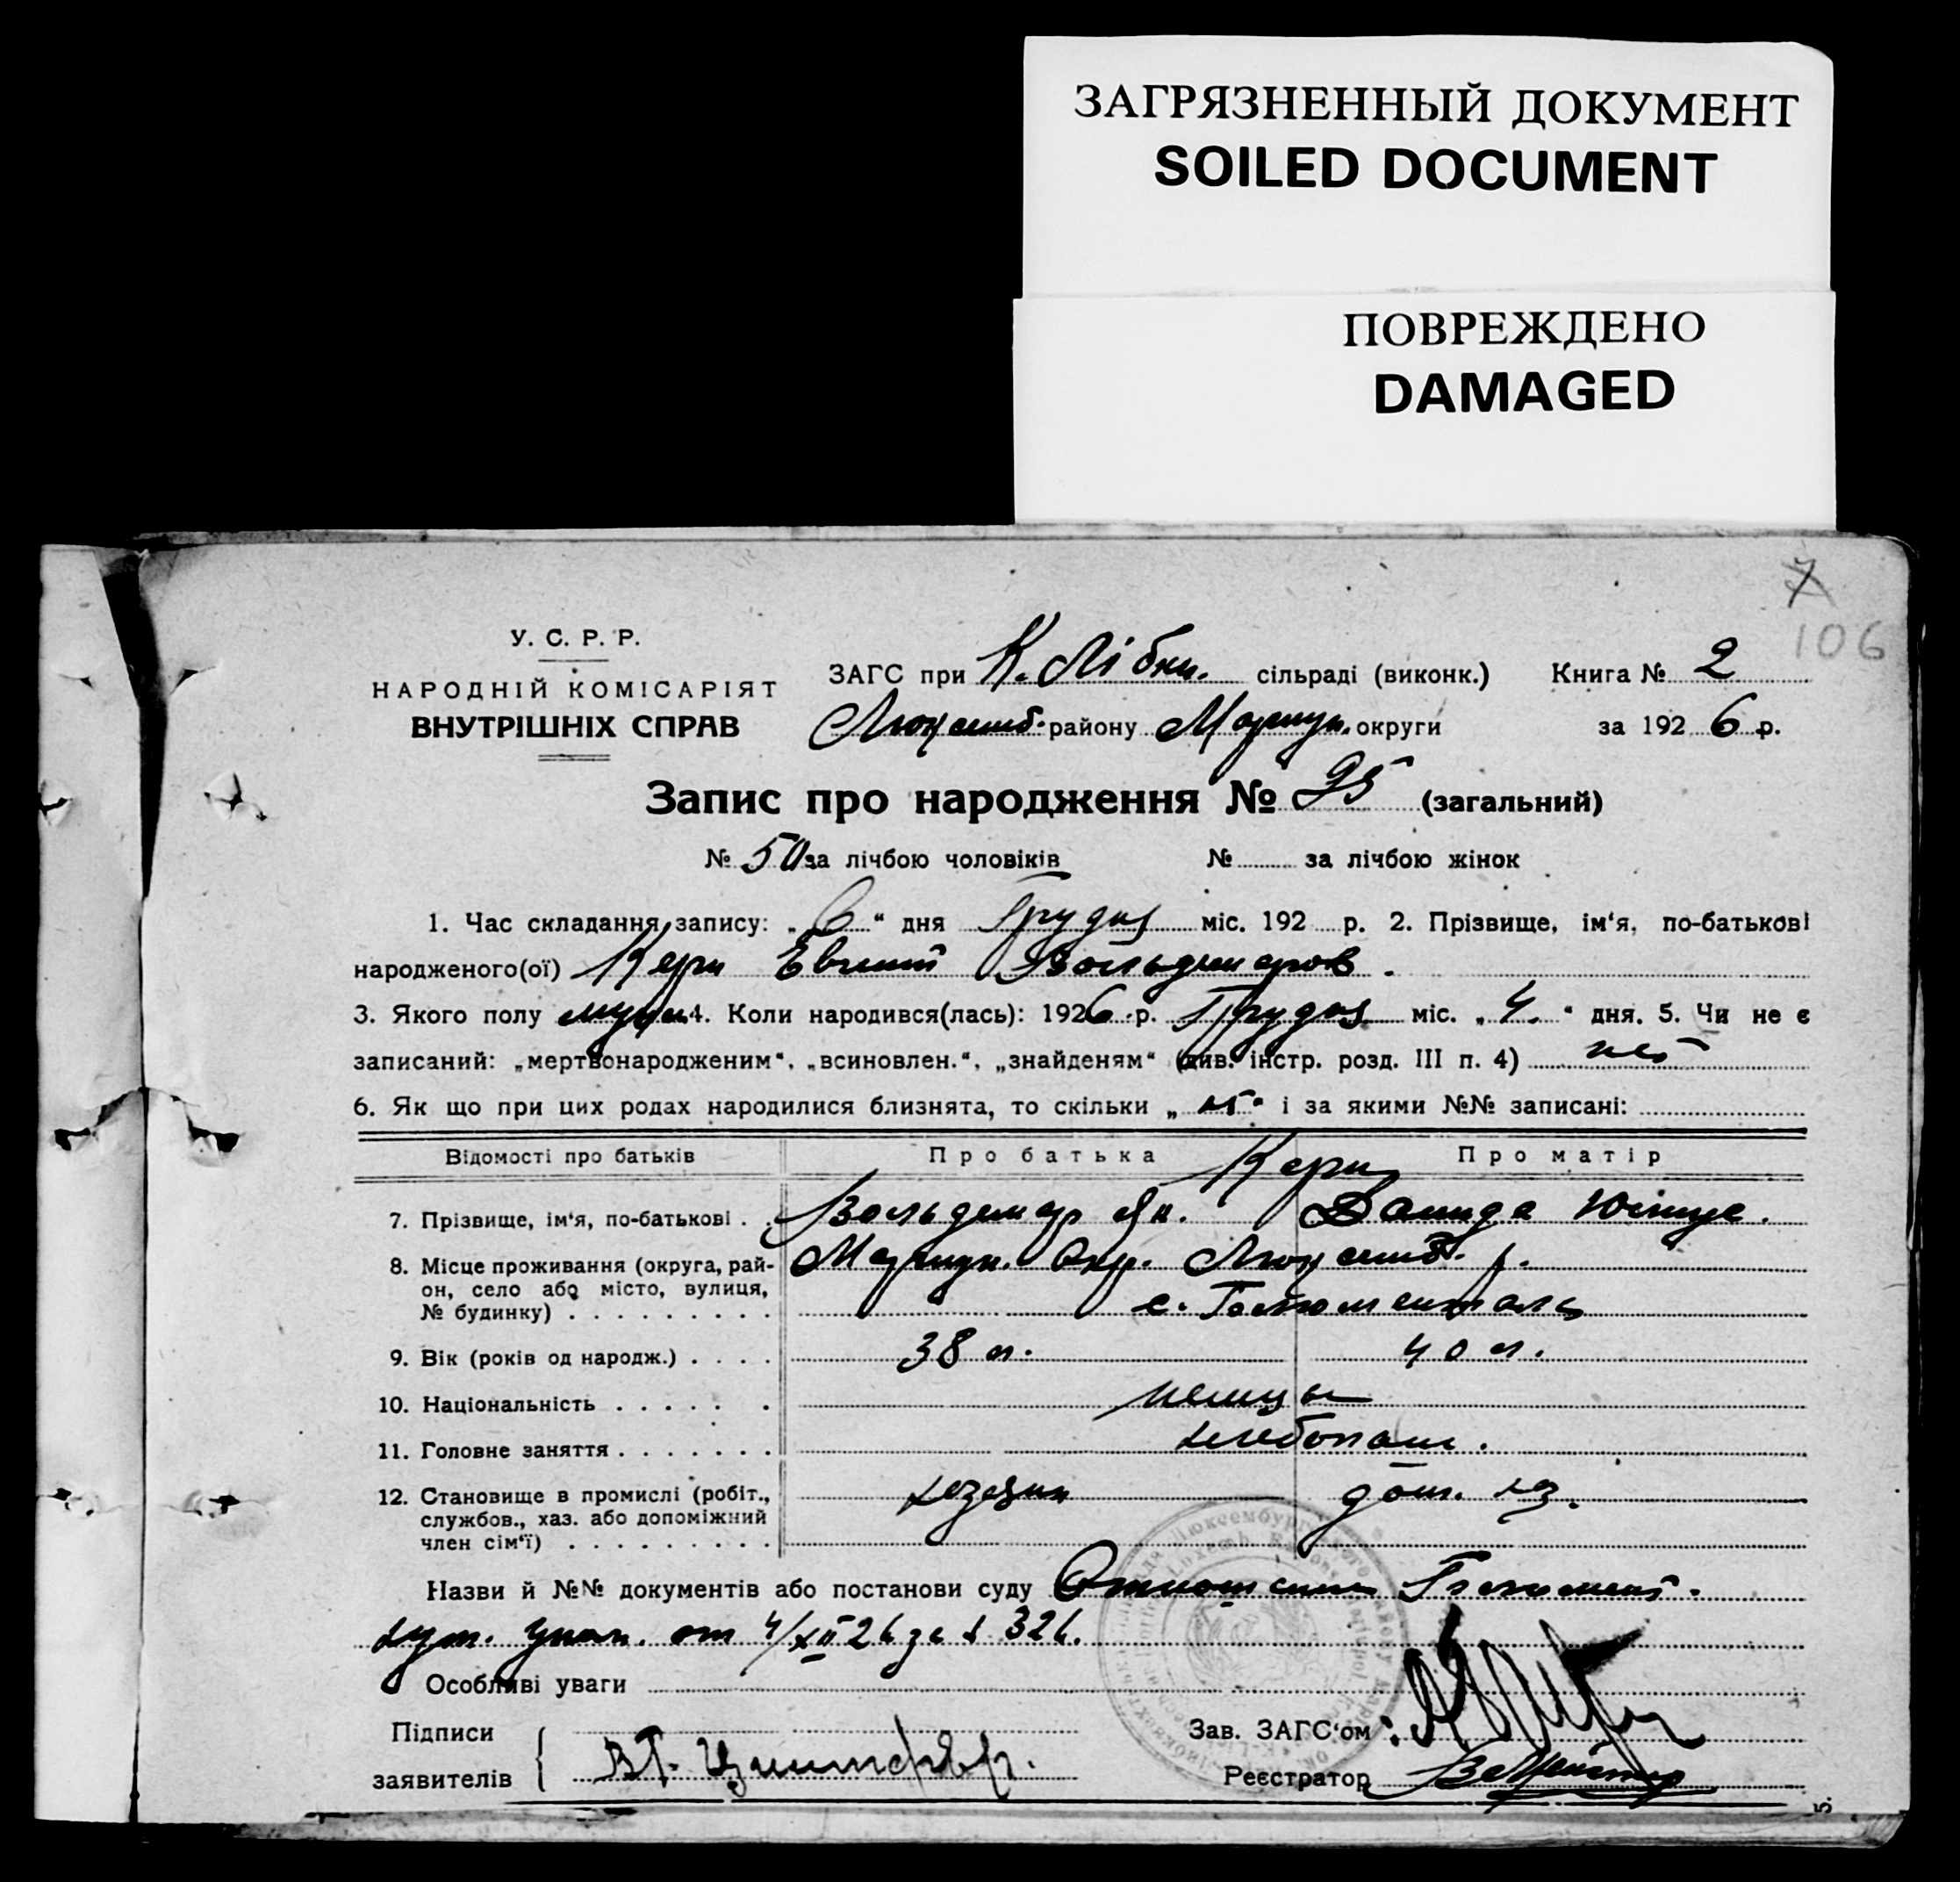 ЗАГРЯЗНЕННЫЙ ДОКУМЕНТ
SOILED DOCUMENT
ПОВРЕЖДЕНО
DAMAGED
7
106
У. С. Р. Р.
НАРОДНІЙ КОМІСАРІЯТ
ВНУТРІШНІХ СПРАВ
ЗАГС при К. Лібкн. сільраді (виконк.) Книга № 2
Люксемб. району Маріуп. округи за 1926 р.
Запис про народження № 95 (загальний)
№ 50 за лічбою чоловіків № за лічбою жінок
1. Час складання запису: „6“ дня Грудня міс. 192 р. 2. Прізвище, ім‘я, по-батькові
народженого(ої) Керн Евгений Вольдемаров.
3. Якого полу мужск. 4. Коли народився(лась): 1926 р. Грудня міс. „4.“ дня. 5. Чи не є
записаний: „мертвонародженим“, „всиновлен.“, „знайденям“ (див. інстр. розд. III п. 4) нет
6. Як що при цих родах народилися близнята, то скільки „ “ і за якими №№ записані:
Відомості про батьків Про батька Про матір
Керн
7. Прізвище, ім‘я, по-батькові . . Вольдемар Як.
8. Місце проживання (округа, район, Мариуп. Окр. Люксемб. р.
он, село або місто, вулиця,
№ будинку) . . . . . . . . . с.
9. Вік (років од народж.) . . . . 38 л. 40 л.
10. Національність . . . . . . немцы
11. Головне заняття . . . . . . . хлебопаш.
12. Становище в промислі (робіт., хозяин дом. хоз.
службов., хаз. або допоміжний
член сім‘ї) . . . . . . . . .
Назви й №№ документів або постанови суду Отношение
хут. упол. от 4/XII 26 за № 326.
Особливі уваги
Підписи Зав. ЗАГС‘ом
заявителів Реєстратор
5.